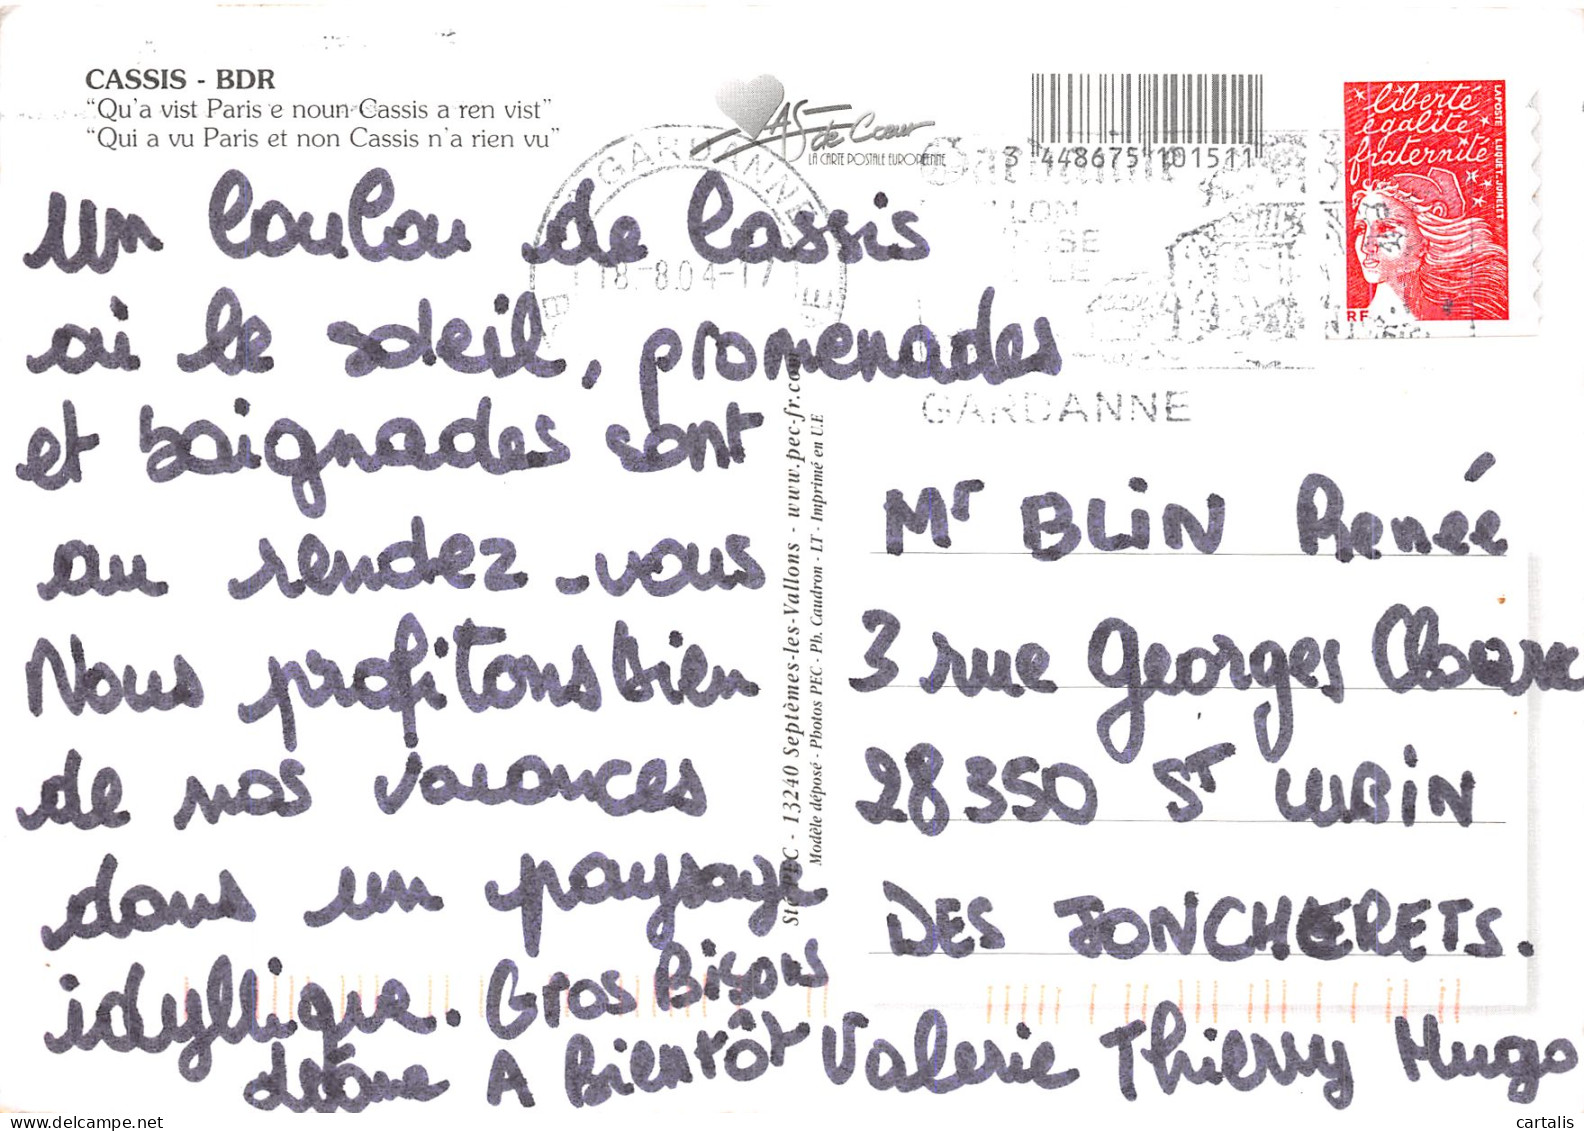 CASSIS - BDR
“Qu'a vist Paris e noun Cassis a ren vist”
“Qui a vu Paris et non Cassis n'a rien vu”
AS de Cœur
LA CARTE POSTALE EUROPÉENNE
3 448675 101511
liberté
égalité
fraternité
LA POSTE LUQUET. JUMELET
RF
GARDANNE
18.-8.04-17
GARDANNE
un loulou de Cassis
où le soleil, promenades
et baignades sont
au rendez-vous
Nous profitons bien
de nos vacances
dans un paysage
idyllique. Gros Bisous
A Bientôt Valerie Thierry Hugo
Sté PEC - 13240 Septèmes-les-Vallons - www.pec-fr.com
Modèle déposé - Photos PEC - Ph. Caudron - LT - Imprimé en U.E
Mr BLIN Renée
3 rue Georges
28350 ST LUBIN
DES JONCHERETS.
cartalis
delcampe.net